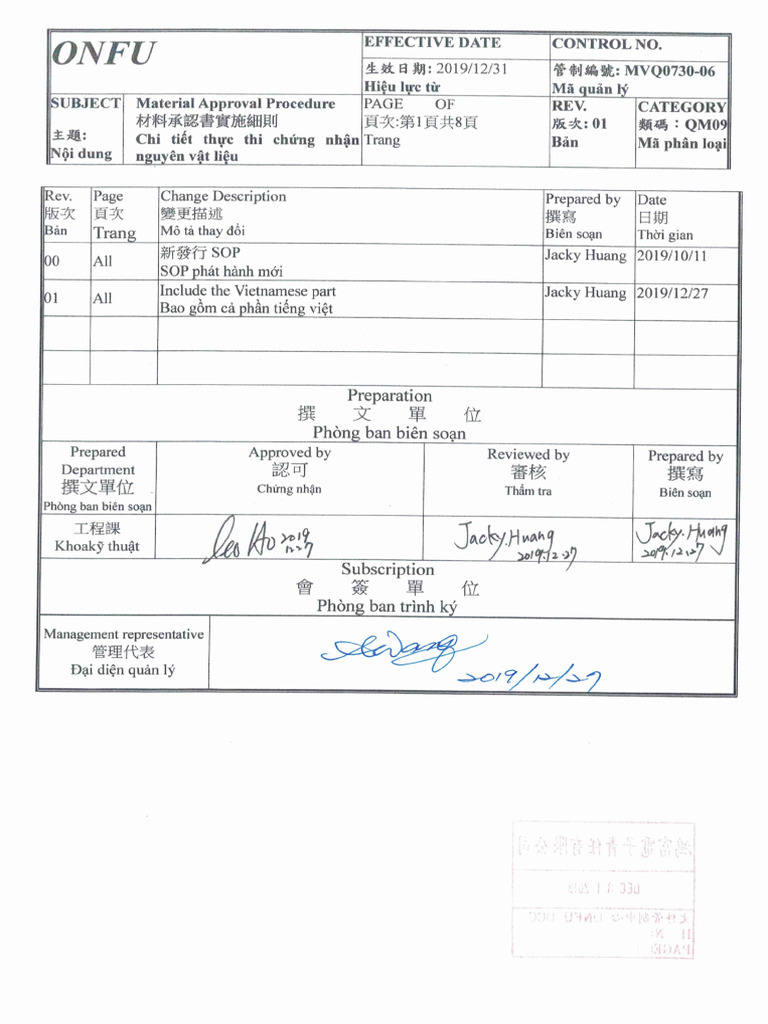 ONFU
EFFECTIVE DATE
生效日期: 2019/12/31
Hiệu lực từ
CONTROL NO.
管制編號: MVQ0730-06
Mã quản lý
SUBJECT
主題:
Nội dung
Material Approval Procedure
材料承認書實施細則
Chi tiết thực thi chứng nhận
nguyên vật liệu
PAGE OF
頁次:第1頁共8頁
Trang
REV.
版次: 01
Bản
CATEGORY
類碼：QM09
Mã phân loại
Rev.
版次
Bản
Page
頁次
Trang
Change Description
變更描述
Mô tả thay đổi
Prepared by
撰寫
Biên soạn
Date
日期
Thời gian
00
All
新發行 SOP
SOP phát hành mới
Jacky Huang
2019/10/11
01
All
Include the Vietnamese part
Bao gồm cả phần tiếng việt
Jacky Huang
2019/12/27
Preparation
撰 文 單 位
Phòng ban biên soạn
Prepared
Department
撰文單位
Phòng ban biên soạn
Approved by
認可
Chứng nhận
Reviewed by
審核
Thẩm tra
Prepared by
撰寫
Biên soạn
工程課
Khoakỹ thuật
Leo Ho 2019
12.27
Jacky.Huang
2019.12.27
Jacky.Huang
2019.12.27
Subscription
會 簽 單 位
Phòng ban trình ký
Management representative
管理代表
Đại diện quản lý
2019/12/27
鴻富電子責任有限公司
DEC 31 2019
文件管制中心 ONFU DCC
PAGE: